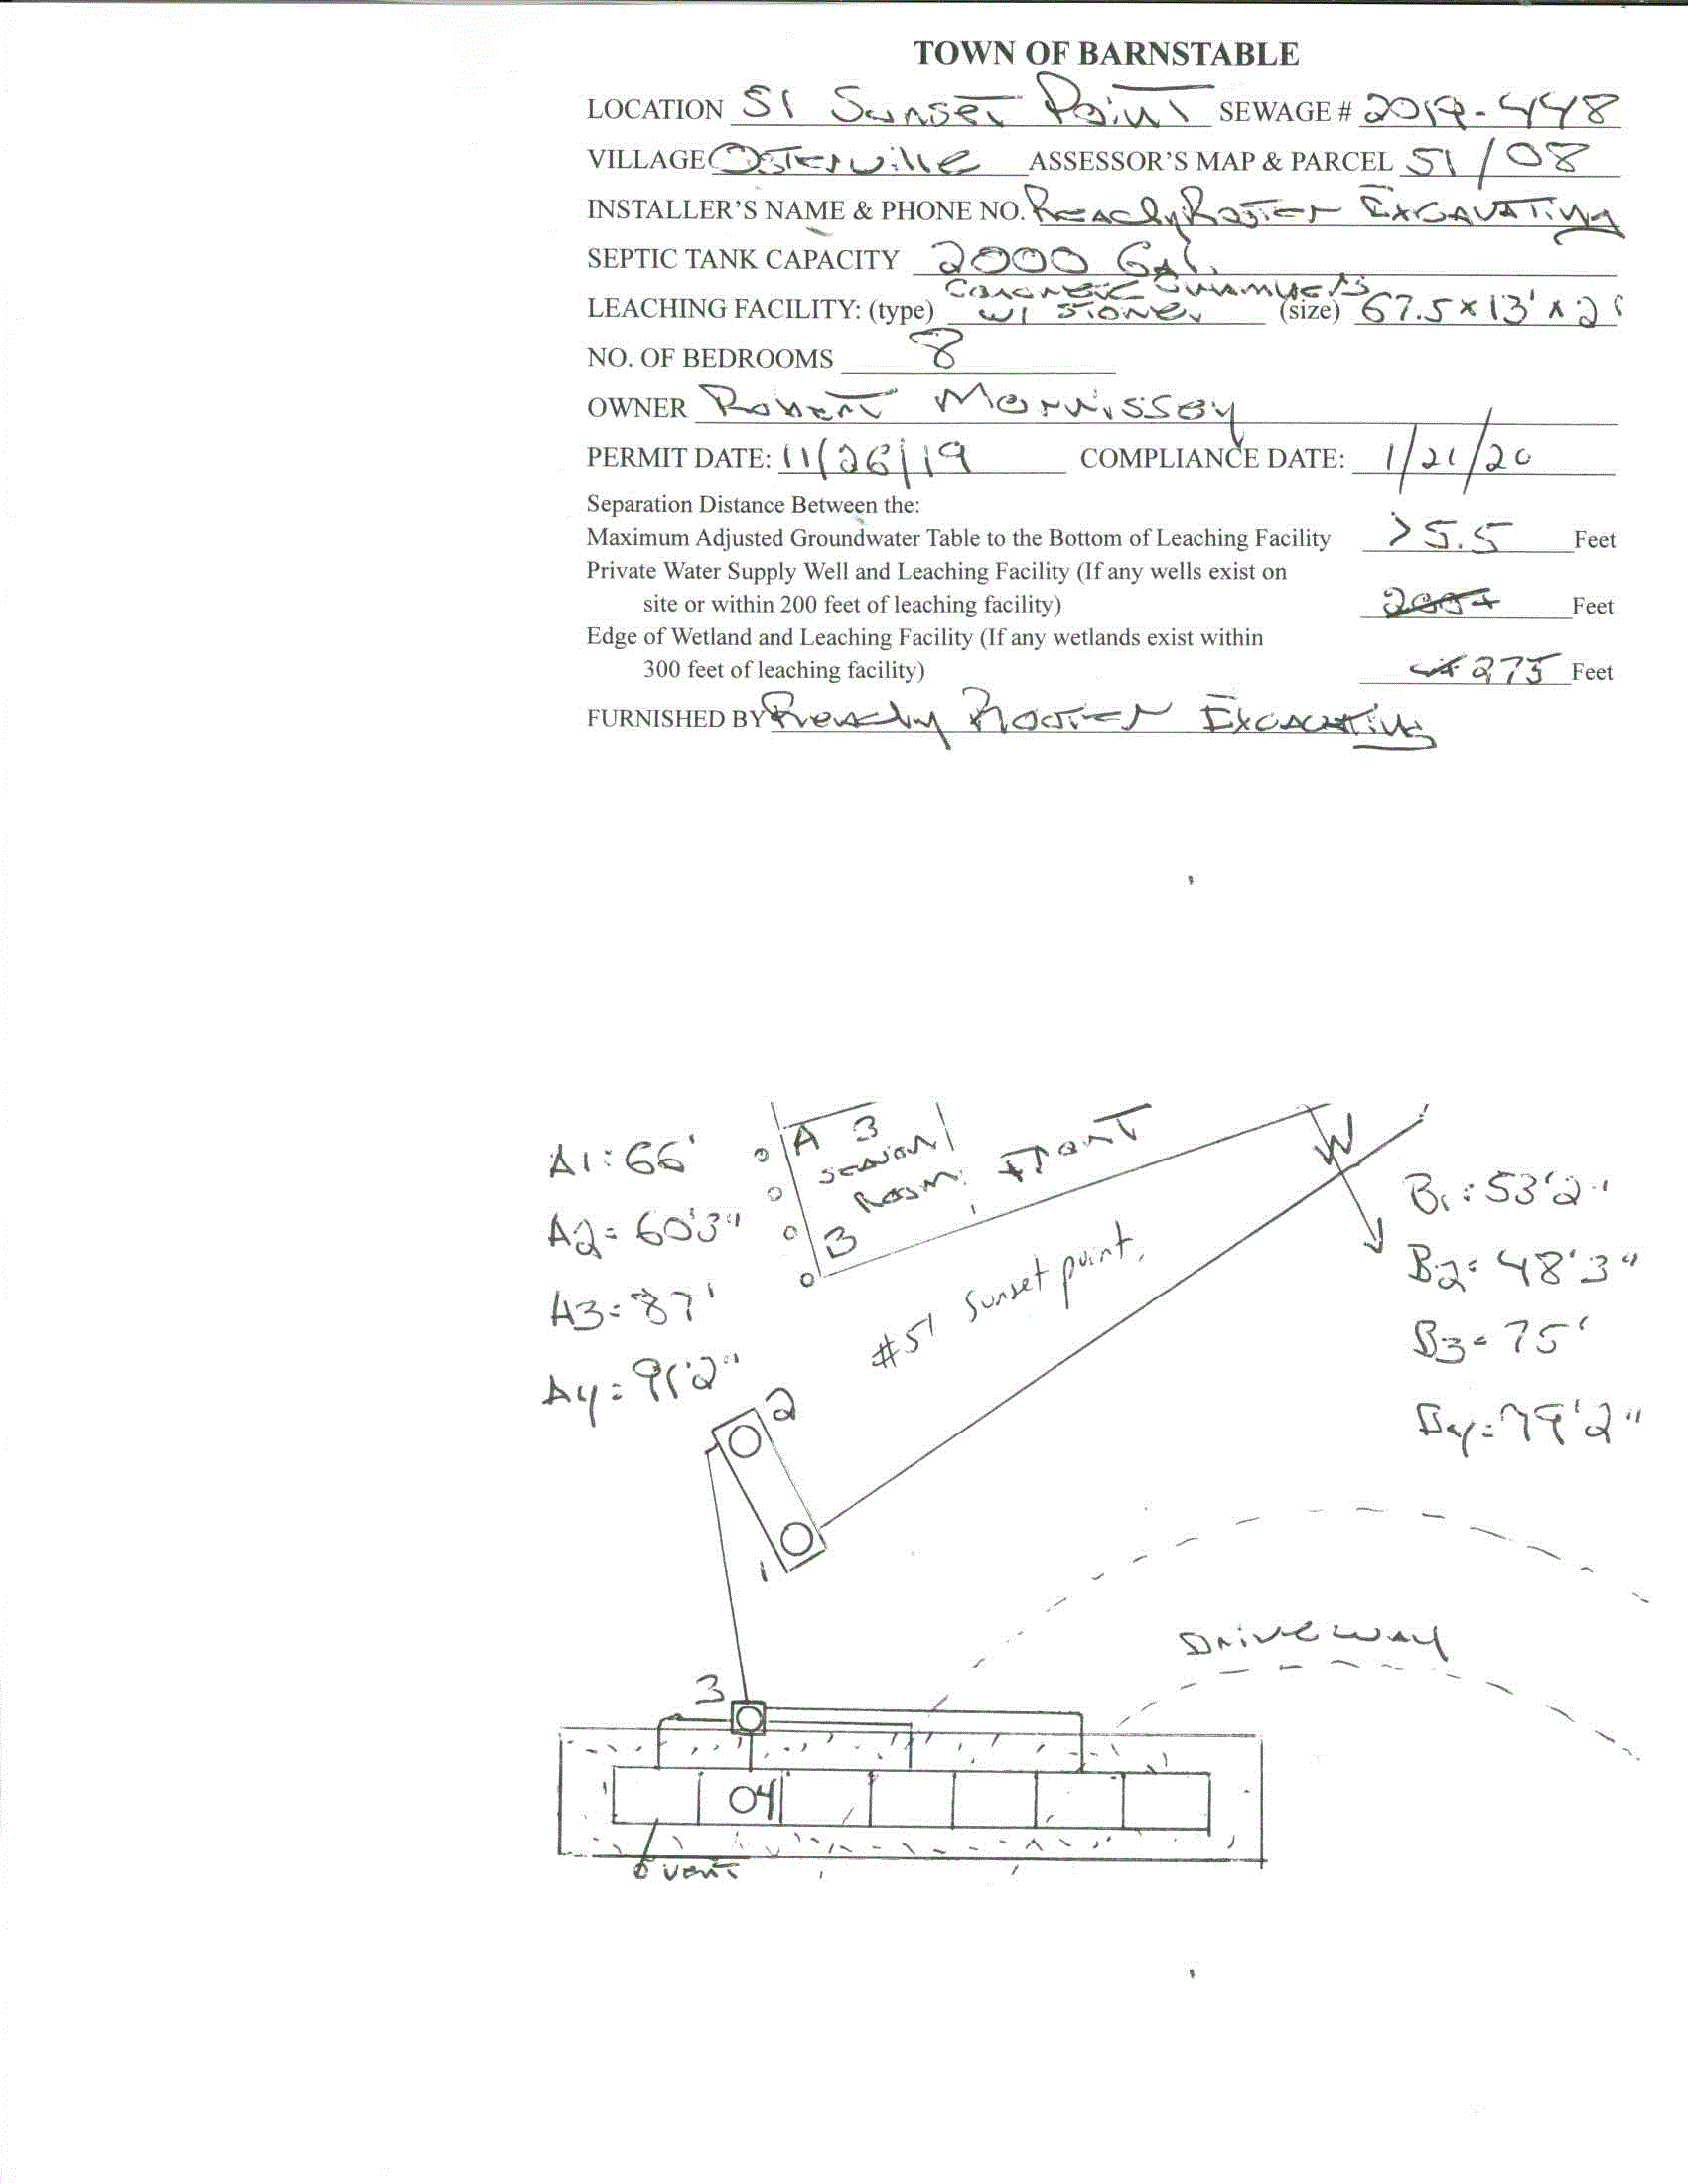 TOWN OF BARNSTABLE
LOCATION 51 Sunset Point SEWAGE # 2019-448
VILLAGE Osterville ASSESSOR'S MAP & PARCEL 51/08
INSTALLER'S NAME & PHONE NO. Ready Rooter Excavating
SEPTIC TANK CAPACITY 2000 Gal.
LEACHING FACILITY: (type) Concrete Chambers w/ stone (size) 67.5 x 13' x 2'
NO. OF BEDROOMS 8
OWNER Robert Morrissey
PERMIT DATE: 11/26/19 COMPLIANCE DATE: 1/21/20
Separation Distance Between the:
Maximum Adjusted Groundwater Table to the Bottom of Leaching Facility >5.5 Feet
Private Water Supply Well and Leaching Facility (If any wells exist on
site or within 200 feet of leaching facility) Feet
Edge of Wetland and Leaching Facility (If any wetlands exist within
300 feet of leaching facility) 275 Feet
FURNISHED BY Ready Rooter Excavating
A1: 66'
A2= 60'3"
A3= 87'
A4= 91'2"
A 3
season
Room
Front
B
W
B1: 53'2"
B2= 48'3"
B3= 75'
B4= 79'2"
#51 Sunset point.
2
1
Driveway
3
4
vent